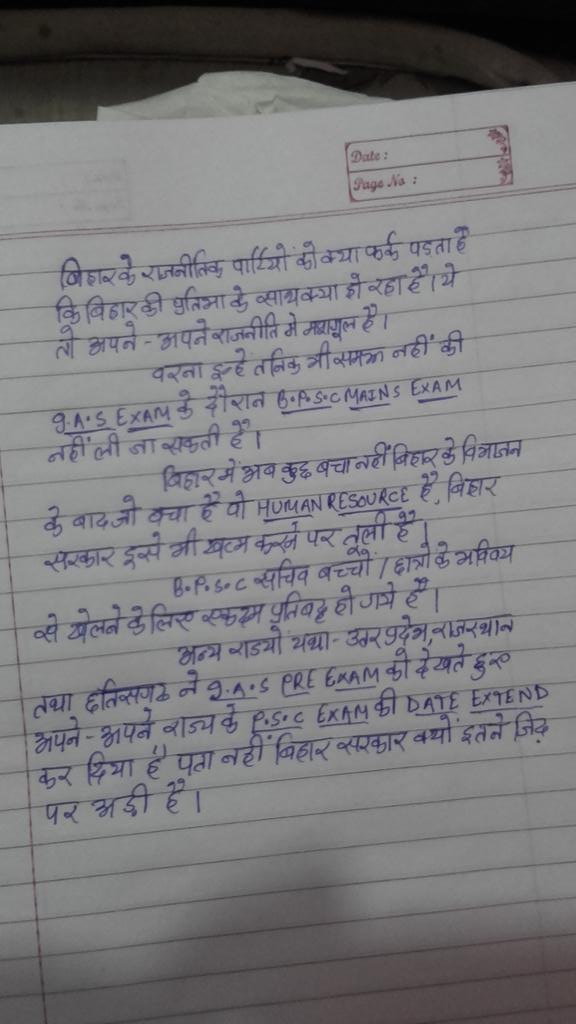 Date :
Page No :
बिहार के राजनीतिक पार्टियों को क्या फर्क पड़ता है
कि बिहार की प्रतिभा के साथ क्या हो रहा है। ये
तो अपने - अपने राजनीति मे मशगूल है।
वरना इन्हे तनिक भी समझ नहीं की
I.A.S EXAM के दौरान B.P.S.C MAINS EXAM
नहीं ली जा सकती है।
बिहार में अब कुछ बचा नहीं बिहार के विभाजन
के बाद जो बचा है वो HUMAN RESOURCE है, बिहार
सरकार इसे भी खत्म करने पर तूली है।
B.P.S.C सचिव बच्चों / छात्रों के भविष्य
से खेलने के लिए एकदम प्रतिबद्ध हो गये है।
अन्य राज्यो यथा - उत्तर प्रदेश, राजस्थान
तथा छतिसगढ ने I.A.S PRE EXAM को देखते हुए
अपने - अपने राज्य के P.S.C EXAM की DATE EXTEND
कर दिया है पता नहीं बिहार सरकार क्यों इतने जिद्द
पर अड़ी है।